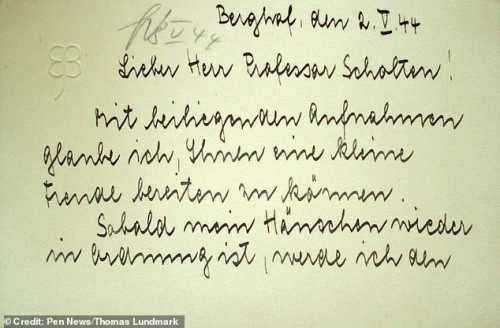 Berghof, den 2. V. 44
V 44
Lieber Herr Professor Scholten!
Mit beiliegenden Aufnahmen
glaube ich, Ihnen eine kleine
Freude bereiten zu können.
Sobald mein Hänschen wieder
in Ordnung ist, werde ich den
© Credit: Pen News/Thomas Lundmark